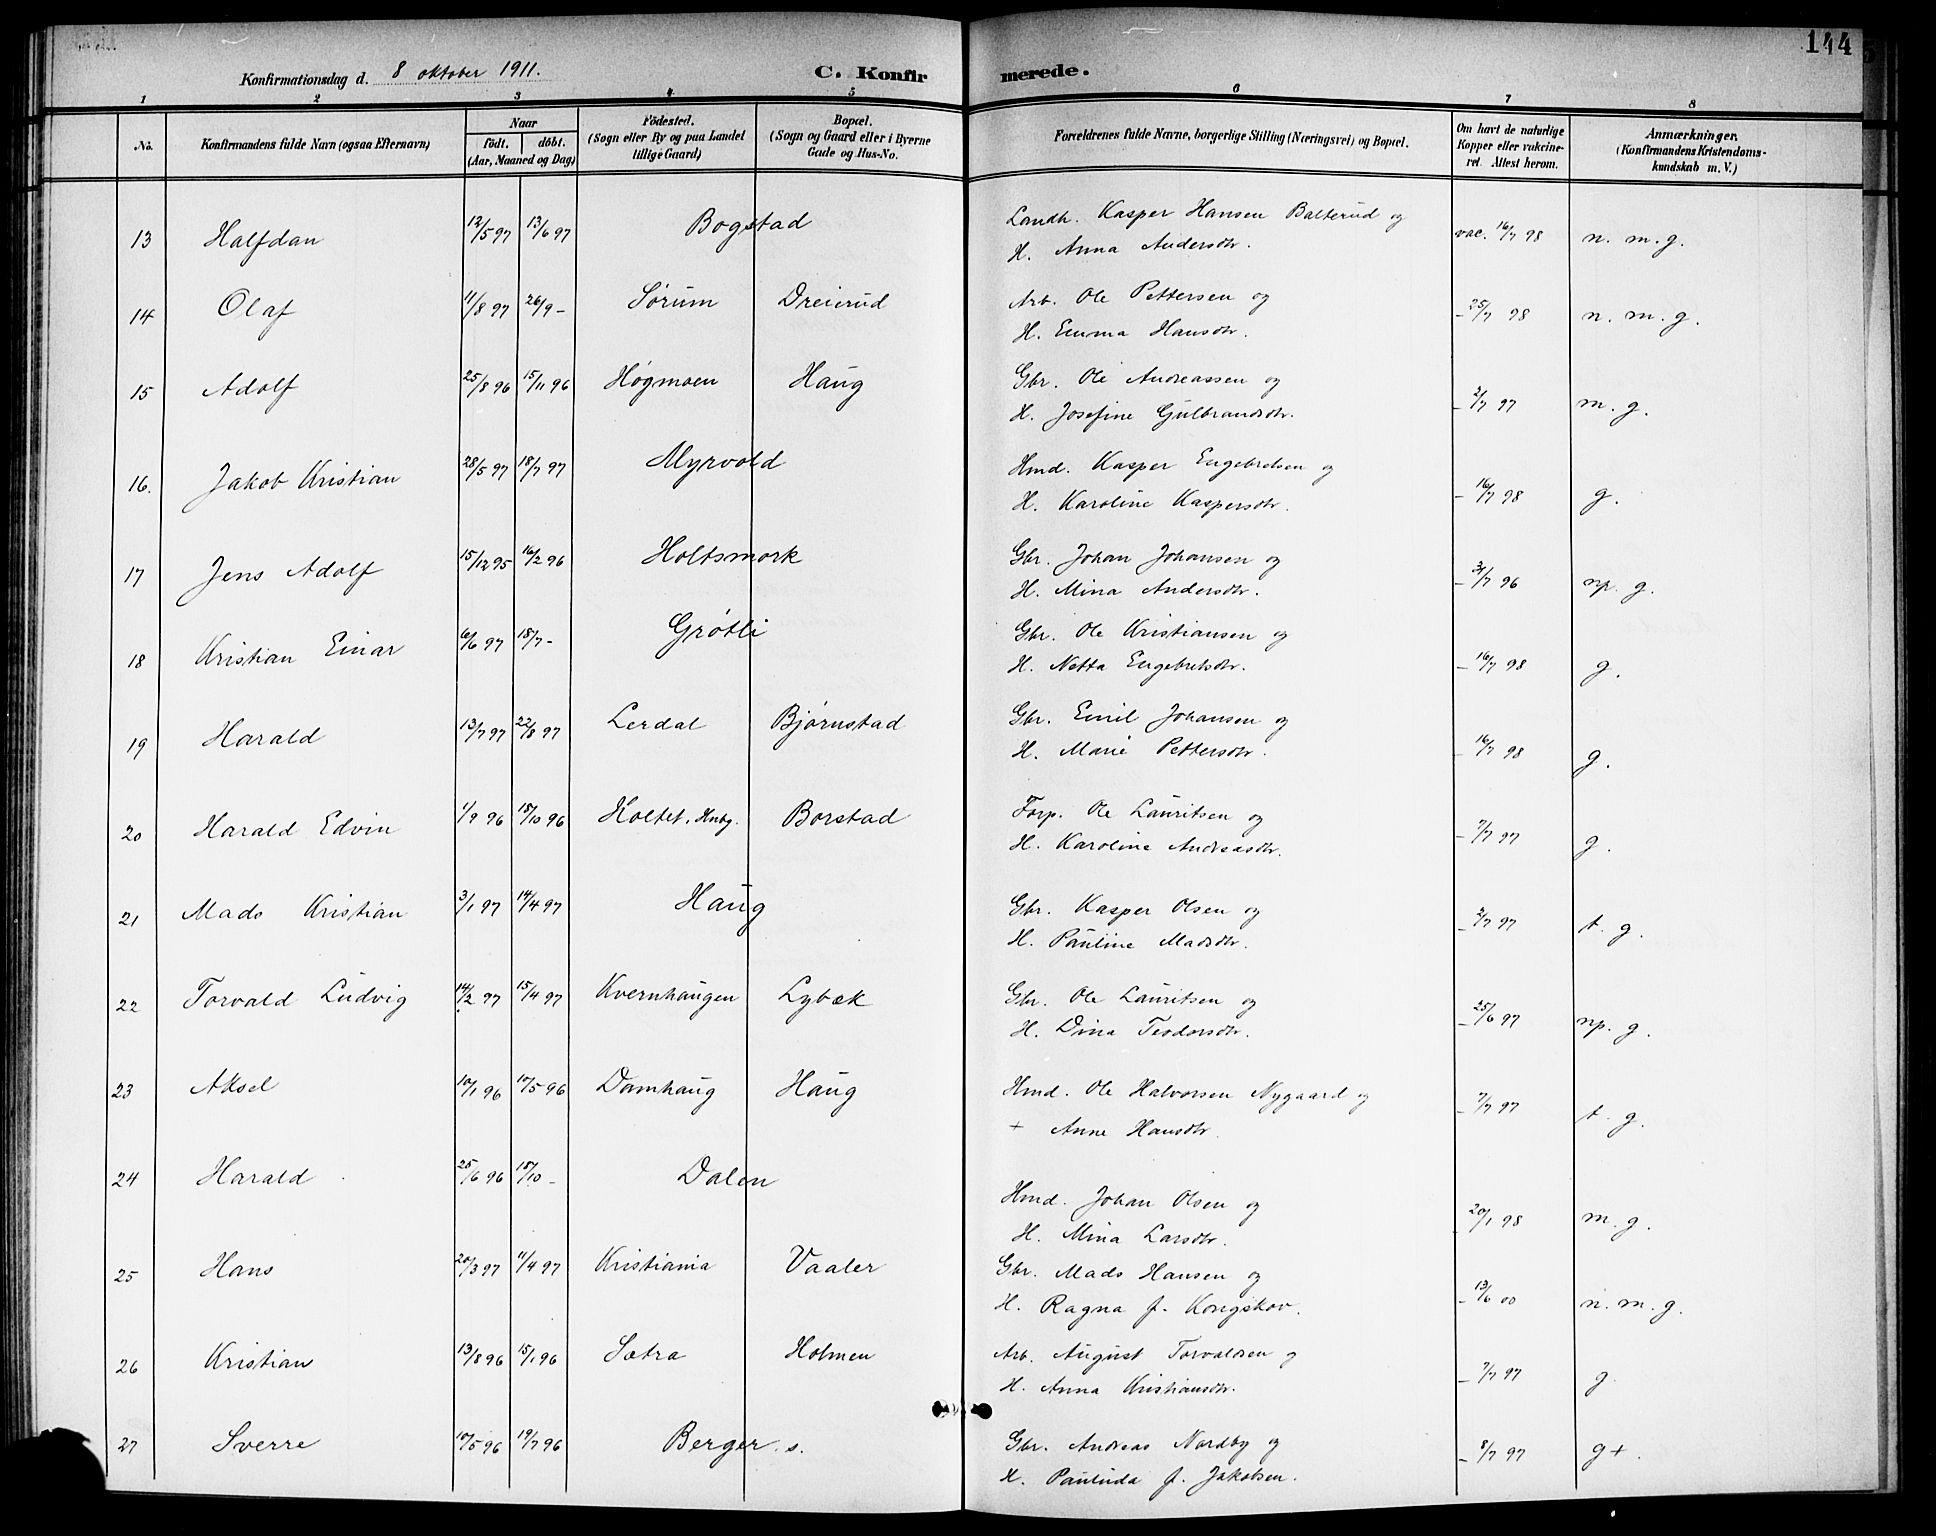 144
Konfirmationsdag d. 8 oktober 1911. C. Konfirmerede.
1 2 3 4 5 6 7 8
No. Konfirmandens fulde Navn (ogsaa Efternavn) Naar födt. döbt. (Aar, Maaned og Dag) Födested. (Sogn eller By og paa Landet tillige Gaard) Bopæl. (Sogn og Gaard eller i Byerne Gade og Hus-No. Forældrenes fulde Navne, borgerlige Stilling (Næringsvei) og Bopæl. Om havt de naturlige Kopper eller vakcineret. Attest herom. Anmærkninger. (Konfirmandens Kristendomskundskab m. V.)
13 Halfdan 12/5 97 13/6 97 Bogstad Landh. Kasper Hansen Balterud og vac. 16/7 98 n. m. g.
H. Anna Andersdtr.
14 Olaf 11/8 97 26/9 – Sørum Dreierud Arb. Ole Pettersen og – 25/7 98 n. m. g.
H. Emma Hansdtr.
15 Adolf 25/8 96 15/11 96 Høgmoen Haug Gbr. Ole Andreassen og – 2/7 97 m. g.
H. Josefine Gulbrandsdtr.
16. Jakob Kristian 28/5 97 18/7 97 Myrvold Hmd. Kasper Engebretsen og – 16/7 98 g.
H. Karoline Kaspersdtr.
17 Jens Adolf 15/12 95 16/2 96 Holtsmork Gbr. Johan Johansen og – 3/7 96 np. g.
H. Mina Andersdtr.
18 Kristian Einar 6/6 97 18/7 – Grøtli Gbr. Ole Kristiansen og – 16/7 98 g.
H. Netta Engebretsdtr.
19 Harald 13/7 97 22/8 97 Lerdal Bjørnstad Gbr. Emil Johansen og – 16/7 98 g.
H. Marie Pettersdtr.
20 Harald Edvin 1/9 96 18/10 96 Holtet, Hnbg. Borstad Forp. Ole Lauritsen og – 7/7 97 g.
H. Karoline Andreasdtr.
21 Mads Kristian 3/1 97 14/4 97 Haug Gbr. Kasper Olsen og – 2/7 97 t. g.
H. Pauline Madsdtr.
22 Torvald Ludvig 14/2 97 15/4 97 Kvernhaugen Lybæk Gbr. Ole Lauritsen og – 25/6 97 np. g.
H. Dina Teodorsdtr.
23 Aksel 10/1 96 10/5 96 Damhaug Haug Hmd. Ole Halvorsen Nygaard og – 7/7 97 t. g.
+ Anne Hansdtr.
24 Harald 25/6 96 18/10 – Dalen Hmd. Johan Olsen og – 20/1 98 m. g.
H. Mina Larsdtr.
25 Hans 20/3 97 11/4 97 Kristiania Vaaler Gbr. Mads Hansen og – 13/6 00 n. m. g.
H. Ragna f. Kongskov.
26 Kristian 13/8 96 15/1 96 Sætra Holmen Arb. August Torvaldsen og – 7/7 97 g
H. Anna Kristiansdtr.
27 Sverre 10/5 96 19/7 96 Berger. s. Gbr. Andreas Nordby og – 8/7 97 g+.
H. Paulida f. Jakobsen.